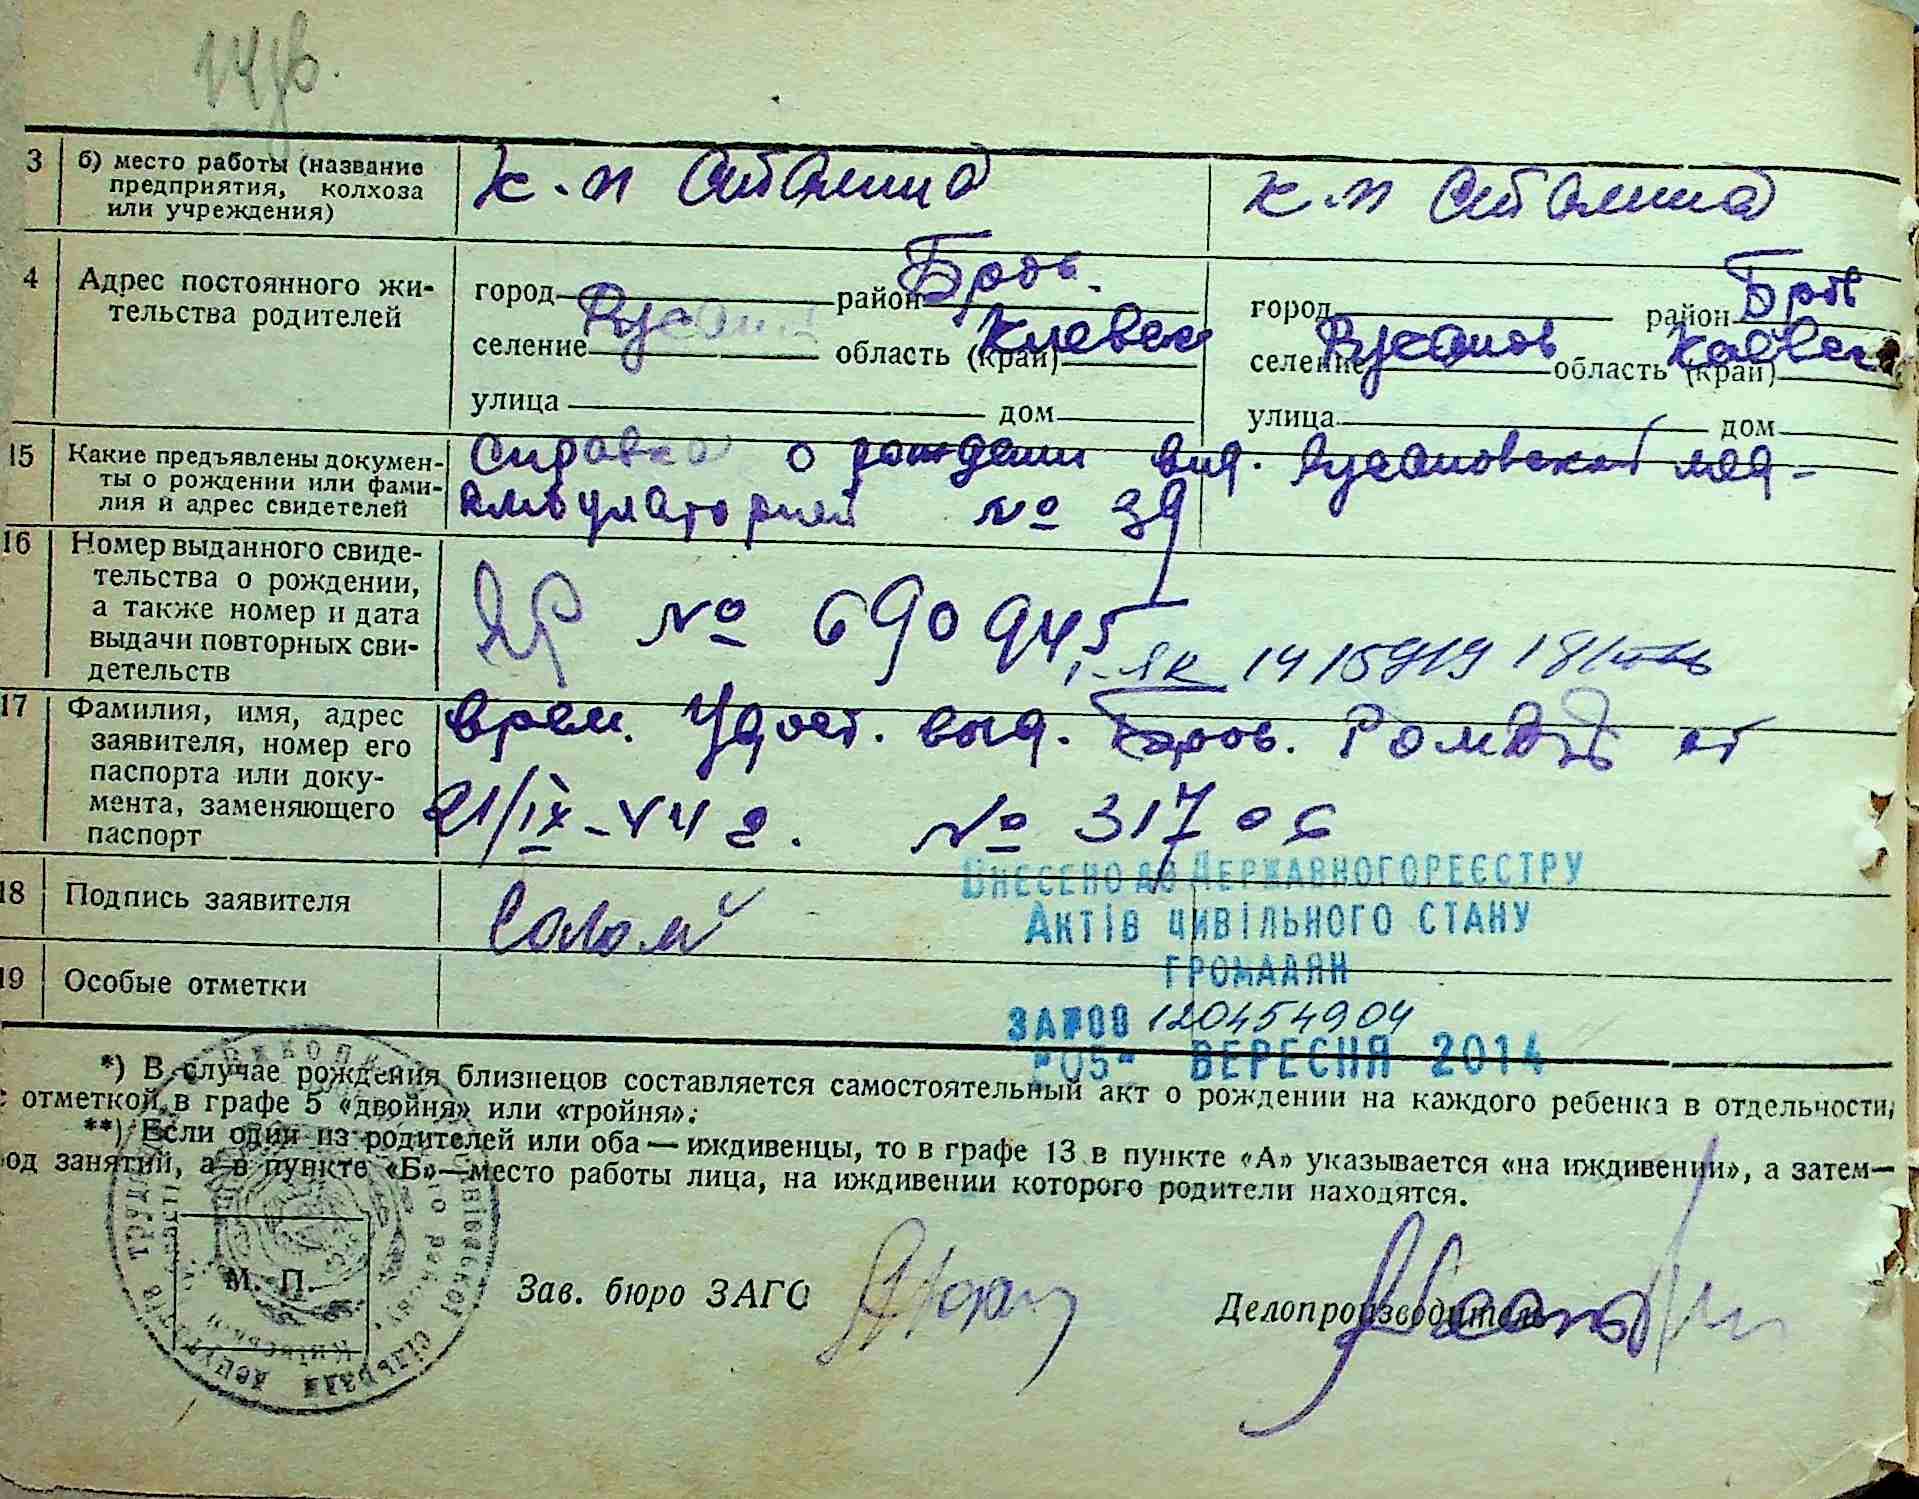 3 б) место работы (название
предприятия, колхоза
или учреждения)
к-п Сталина
к-п Сталина
4 Адрес постоянного жи-
тельства родителей
город район Бров.
селение Русанов область (край) Киевск
улица дом
город район Бров
селение Русанов область (край) Киевск
улица дом
15 Какие предъявлены докумен-
ты о рождении или фами-
лия и адрес свидетелей
Справка о рождении выд. Русановской мед-
амбулаторией № 39
16 Номер выданного свиде-
тельства о рождении,
а также номер и дата
выдачи повторных сви-
детельств
№ 690945
I-ЯК
17 Фамилия, имя, адрес
заявителя, номер его
паспорта или доку-
мента, заменяющего
паспорт
врем. Удост. выд. Бров. от
21/IX-44 г. № 31706
18 Подпись заявителя
19 Особые отметки
Внесено до Державного реєстру
Актів цивільного стану
громадян
ЗА №00 120454904
"05" ВЕРЕСНЯ 2014
*) В случае рождения близнецов составляется самостоятельный акт о рождении на каждого ребенка в отдельности,
с отметкой в графе 5 «двойня» или «тройня».
**) Если один из родителей или оба — иждивенцы, то в графе 13 в пункте «А» указывается «на иждивении», а затем—
од занятий, а в пункте «Б»—место работы лица, на иждивении которого родители находятся.
М. П.
Зав. бюро ЗАГС
Делопроизводитель